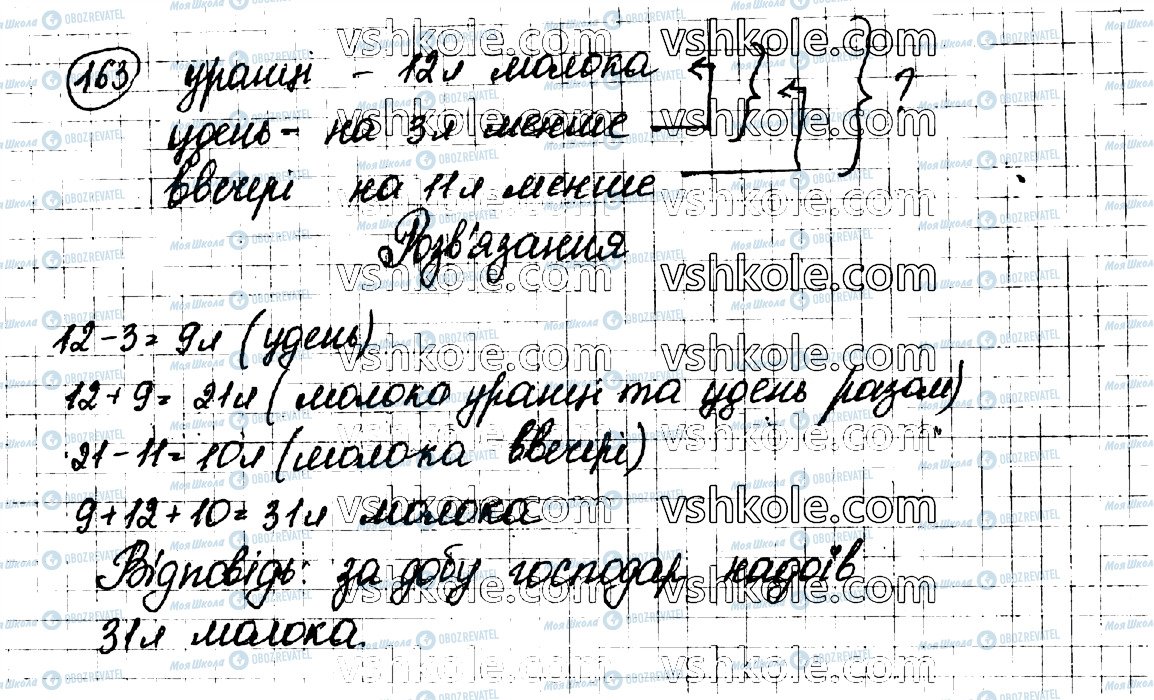 163 уранці - 12л молока
удень - на 3л менше
ввечері на 11л менше
?
Розв'язання
12-3=9л (удень)
12+9=21л (молоко уранці та удень разом)
21-11=10л (молока ввечері)
9+12+10=31л молока
Відповідь: за добу господар надоїв
31л молока.